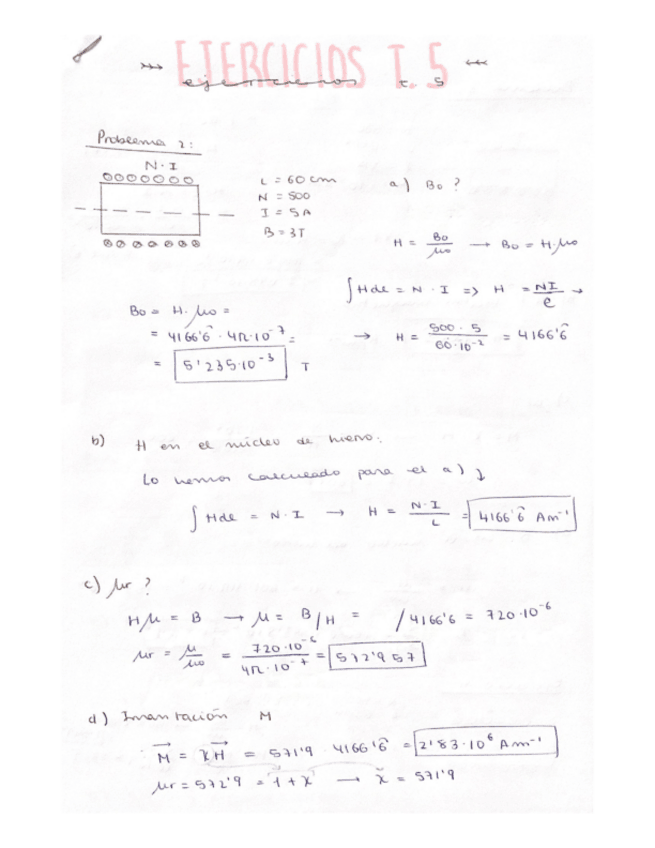 EJERCICIOS T.5
ejercicios t. 5
Problema 2:
N·I
L = 60 cm
N = 500
I = 5A
B = 3T
a) B₀ ?
H = B₀/μ₀ → B₀ = H·μ₀
∫Hdl = N·I => H = NI/l →
→ H = 500·5/60·10⁻² = 4166'6̂
B₀ = H·μ₀ =
= 4166'6̂ · 4π·10⁻⁷ =
= 5'235·10⁻³ T
b) H en el núcleo de hierro:
Lo hemos calculado para el a) ↓
∫Hdl = N·I → H = N·I/L = 4166'6̂ Am⁻¹
c) μr ?
Hμ = B → μ = B/H = /4166'6 = 720·10⁻⁶
μr = μ/μ₀ = 720·10⁻⁶/4π·10⁻⁷ = 572'957
d) Imantación M
M⃗ = χH⃗ = 571'9 · 4166'6̂ = 2'83·10⁶ Am⁻¹
μr = 572'9 = 1+χ → χ = 571'9